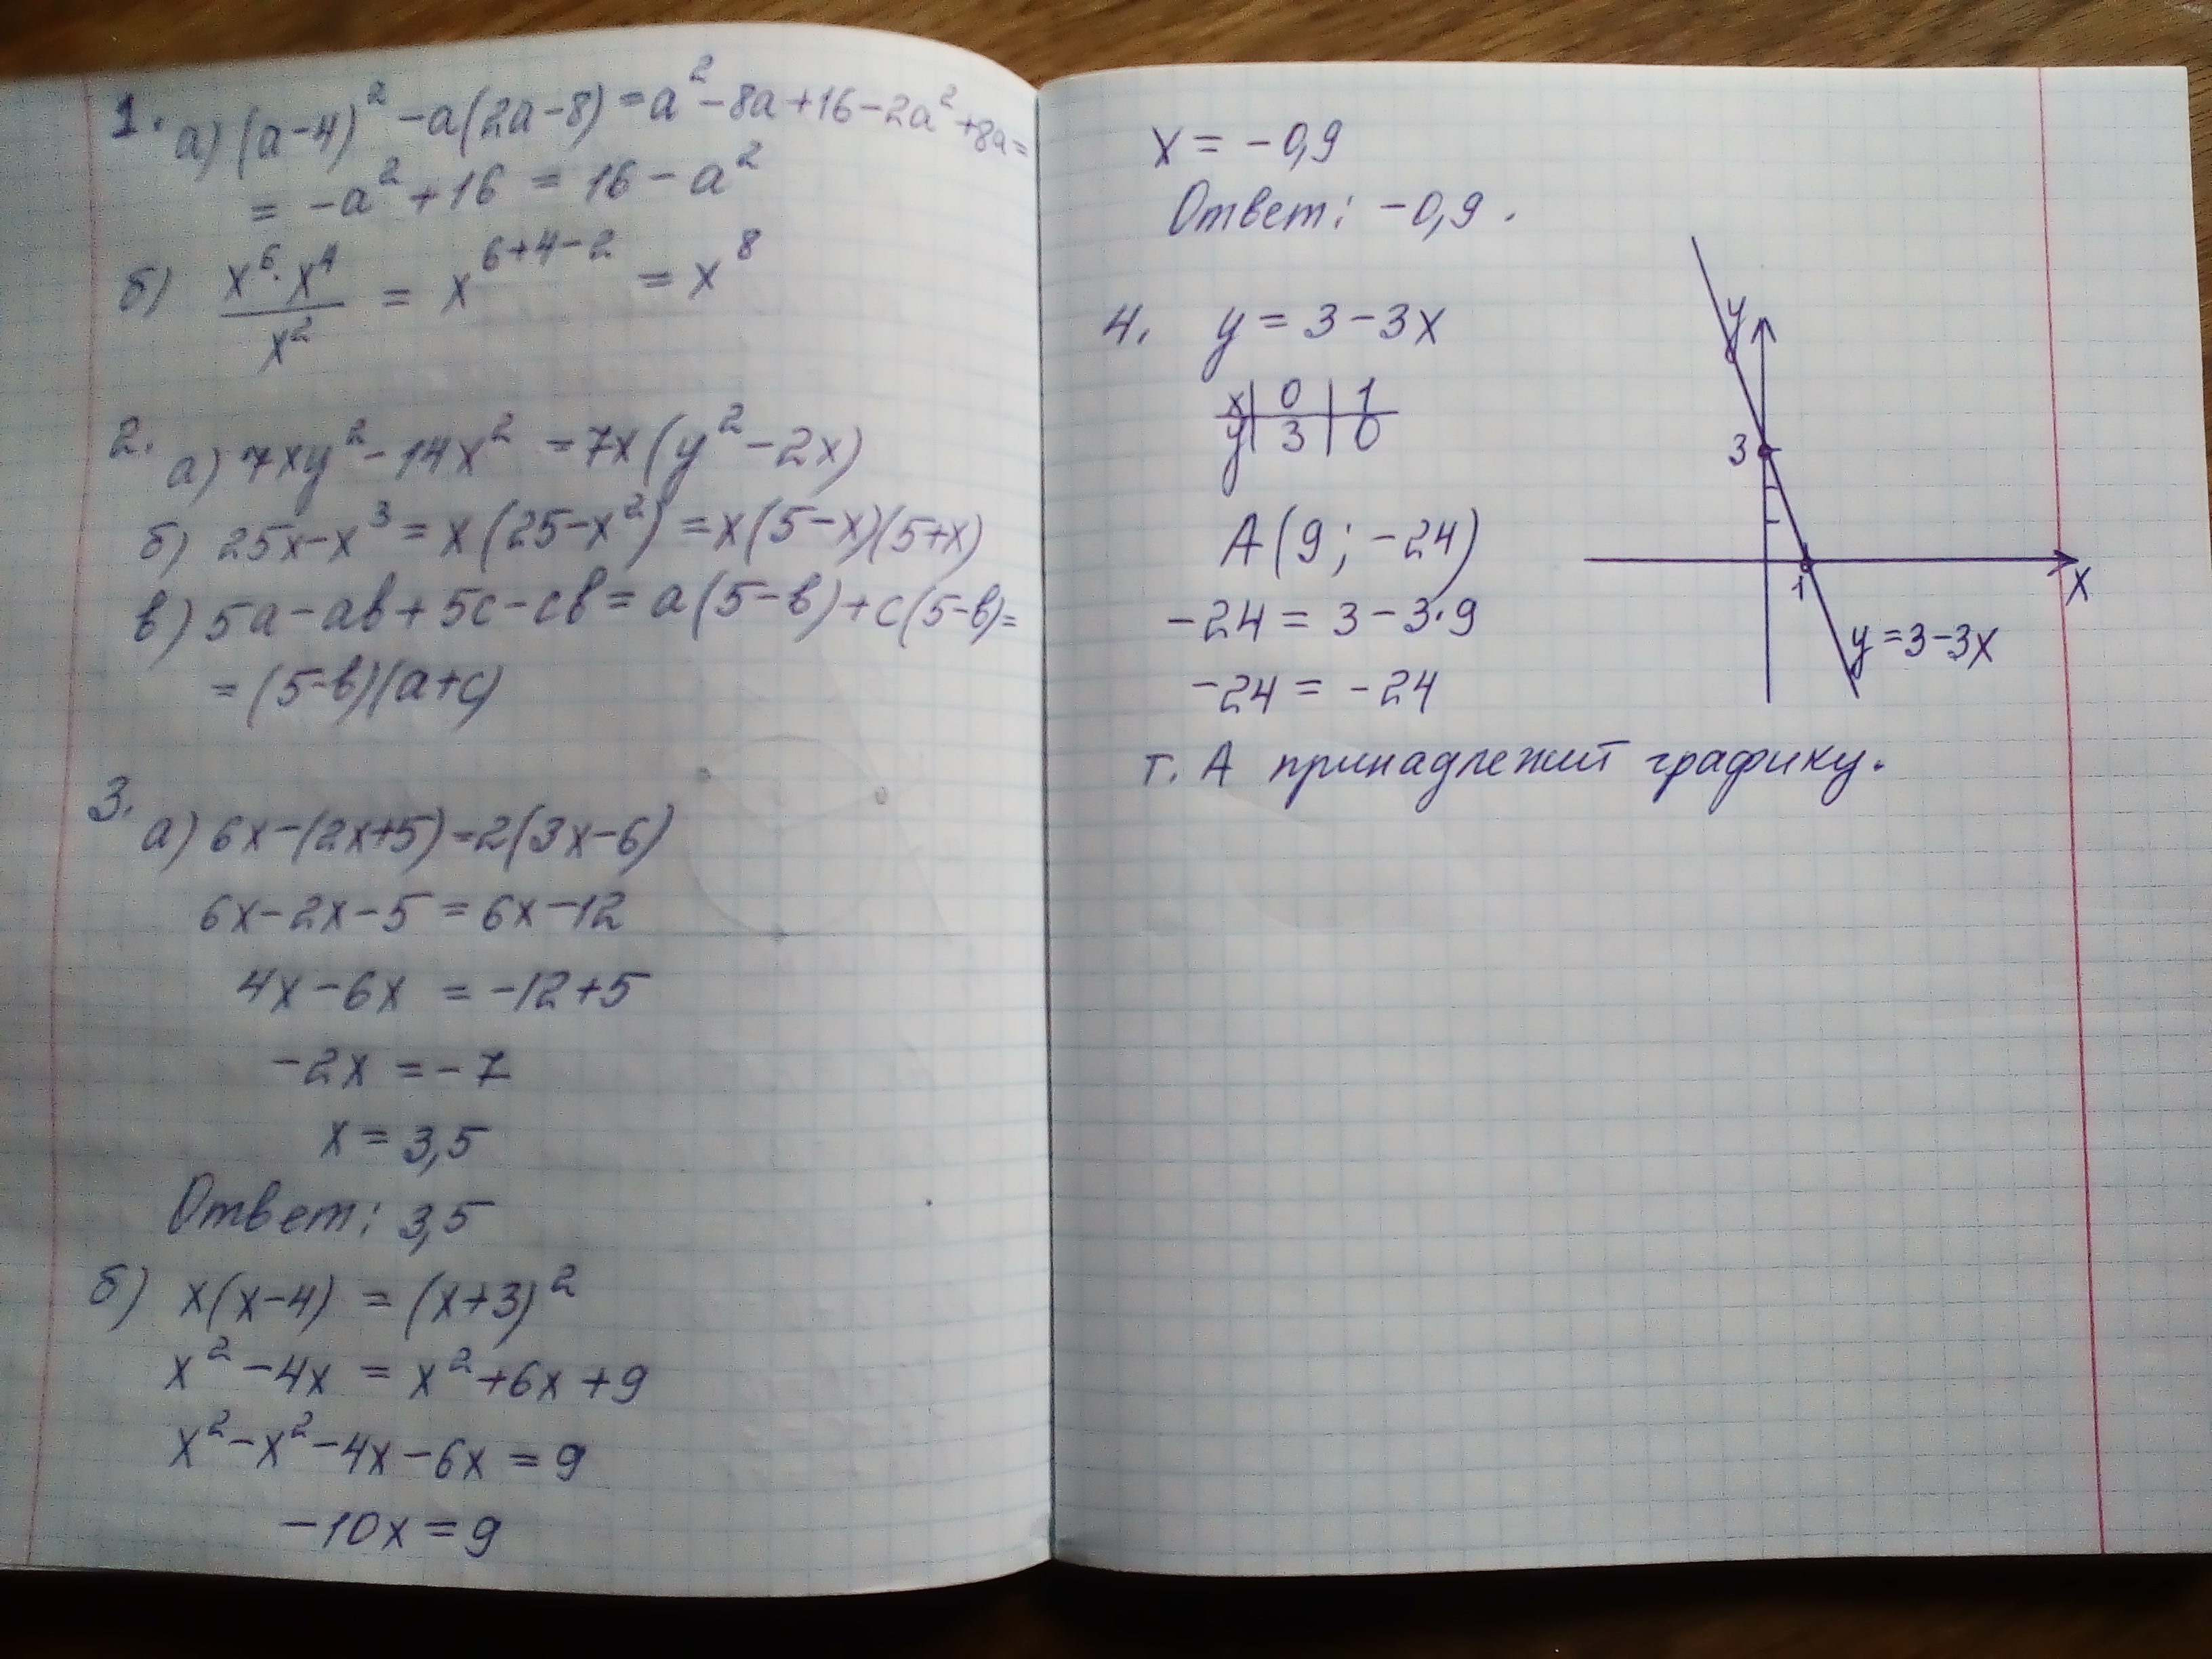 1. а) (a-4)² -a(2a-8) = a² - 8a + 16 - 2a² + 8a =
= -a² + 16 = 16 - a²
б) x⁶·x⁴/x² = x⁶⁺⁴⁻² = x⁸
2. а) 7xy² - 14x² = 7x(y² - 2x)
б) 25x - x³ = x(25-x²) = x(5-x)(5+x)
в) 5a - ab + 5c - cb = a(5-b) + c(5-b) =
= (5-b)(a+c)
3. а) 6x-(2x+5) = 2(3x-6)
6x - 2x - 5 = 6x - 12
4x - 6x = -12 + 5
-2x = -7
x = 3,5
Ответ: 3,5
б) x(x-4) = (x+3)²
x² - 4x = x² + 6x + 9
x² - x² - 4x - 6x = 9
-10x = 9
x = -0,9
Ответ: -0,9.
4. y = 3 - 3x
x | 0 | 1
y | 3 | 0
A(9; -24)
-24 = 3 - 3·9
-24 = -24
т. А принадлежит графику.
y
3
1
x
y = 3 - 3x